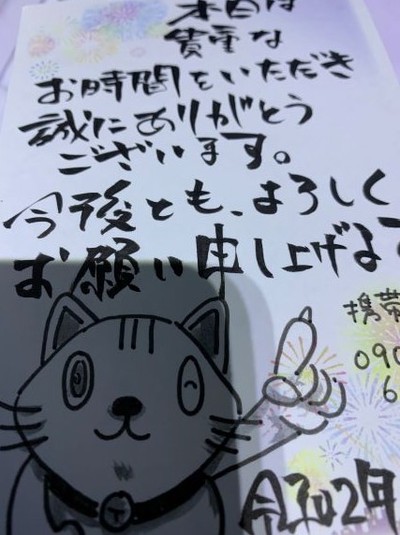 本日は
貴重な
お時間をいただき
誠にありがとう
ございます。
今後とも、よろしく
お願い申し上げます
携帯
090
6
令和2年
T